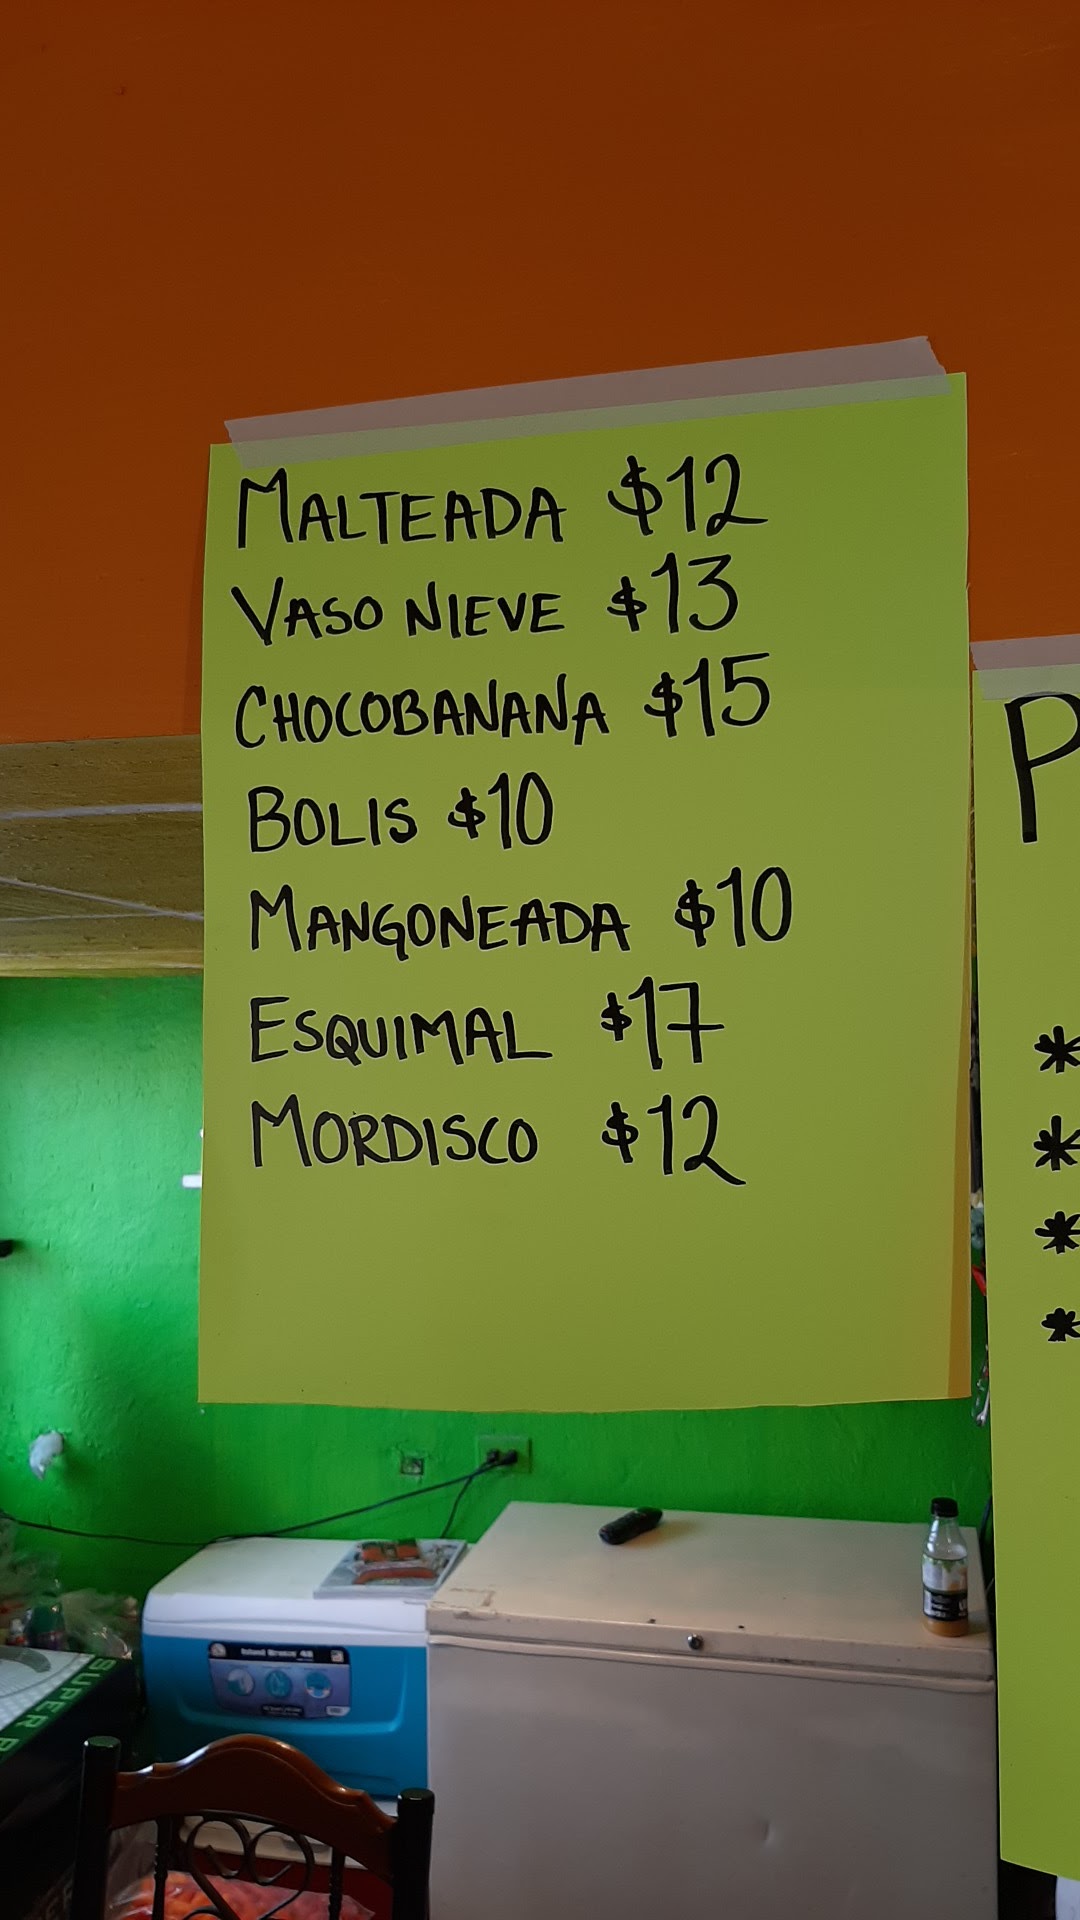 MALTEADA $12
VASO NIEVE $13
CHOCOBANANA $15
BOLIS $10
MANGONEADA $10
ESQUIMAL $17
MORDISCO $12
P
*
*
*
*
Island Breeze 48
SUPER P